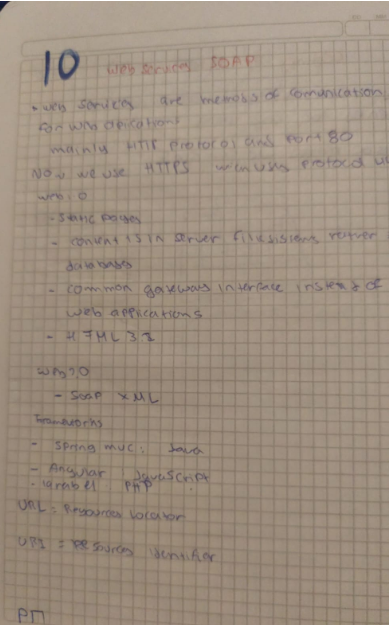 10 Web Services SOAP
• web services are methods of comunication
for web aplications
mainly HTTP protocol and port 80
Now we use HTTPS
web 1.0
- static pages
- content is in server filesistems rather
databases
- common gateway interface instead of
web applications
- HTML 3.2
web 2.0
- Soap XML
Frameworks
- Spring mvc: Java
- Angular : JavaScript
- larabel PHP
URL = Resources locator
URI = Resources identifier